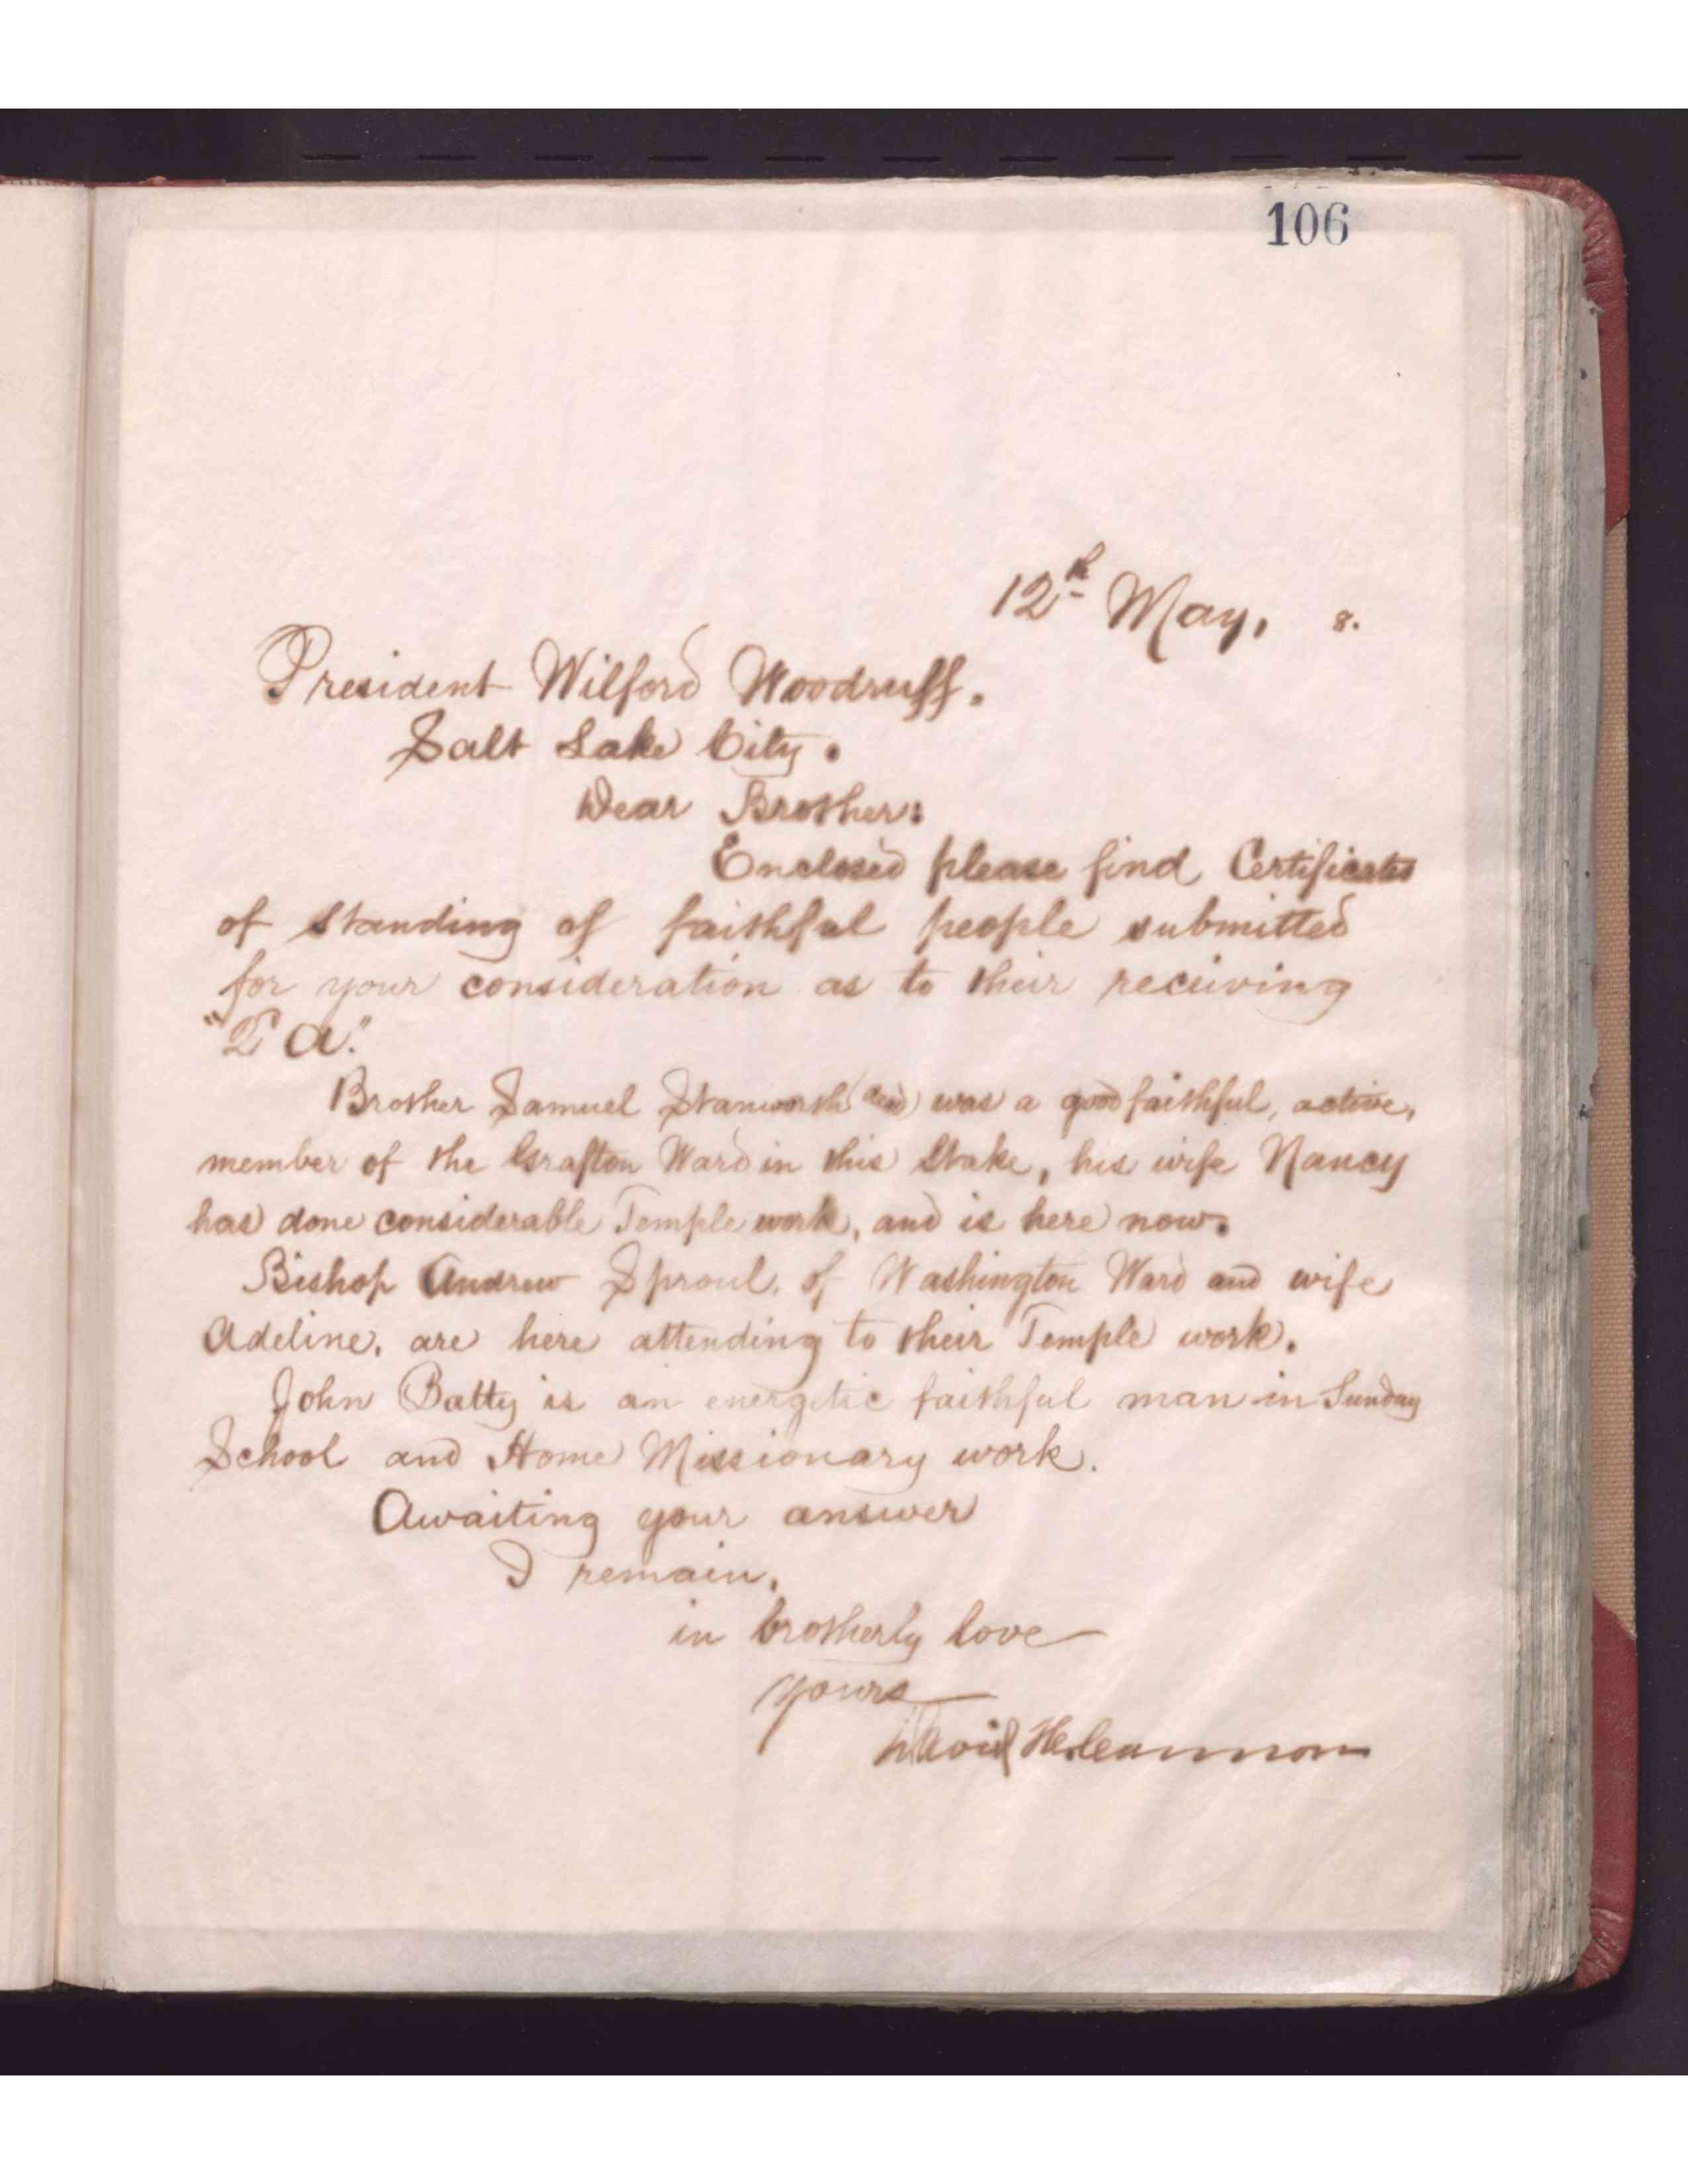 106
12th May, 8.
President Wilford Woodruff.
Salt Lake City.
Dear Brother:
Enclosed please find Certificates
of standing of faithful people submitted
for your consideration as to their receiving
"2 a."
Brother Samuel Stanworth (dead) was a good faithful, active,
member of the Grafton Ward in this Stake, his wife Nancy
has done considerable Temple work, and is here now.
Bishop Andrew Sproul, of Washington Ward and wife
Adeline, are here attending to their Temple work.
John Batty is an energetic faithful man in Sunday
School and Home Missionary work.
Awaiting your answer
I remain,
in brotherly love
yours
David H. Cannon